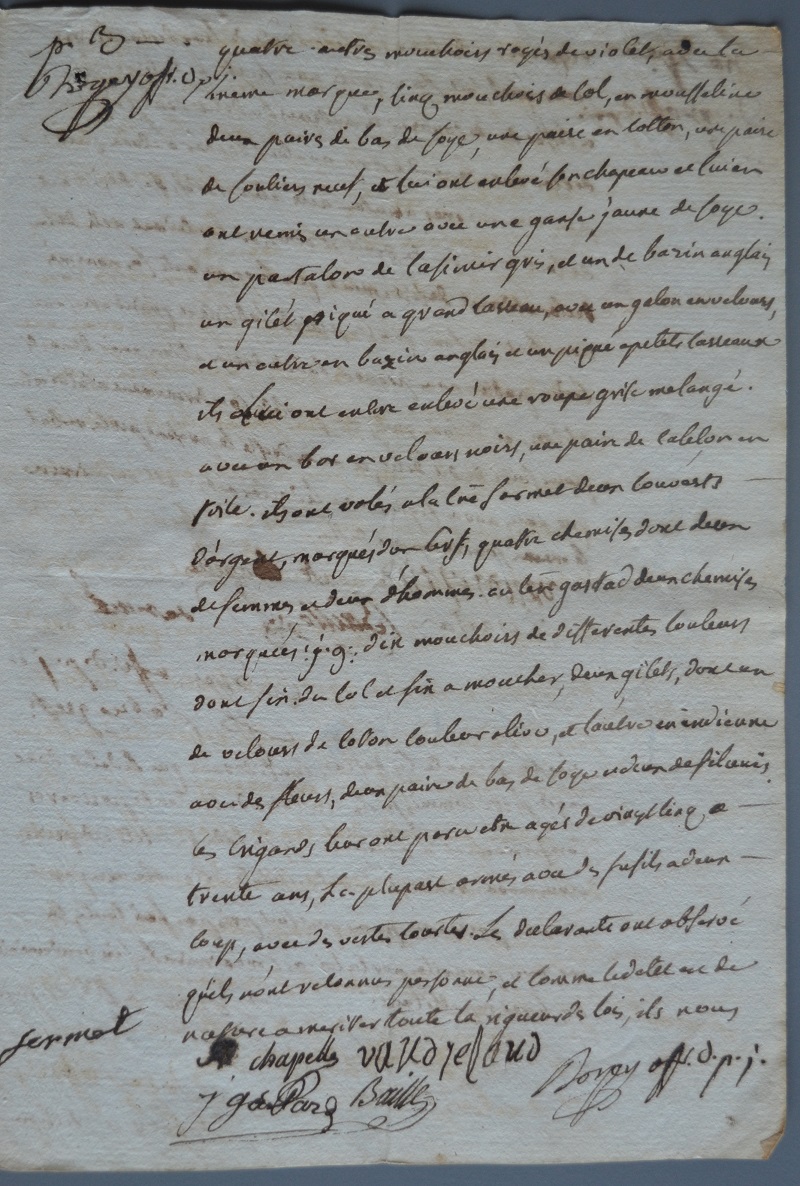 p. 3
Roquoff. d. p. j.
quatre autres mouchoirs rayés de violet, avec la
même marque, cinq mouchoirs de col, en mousseline
deux paires de bas de soye, une paire en cotton, une paire
de souliers neuf, et lui ont enlevé son chapeau et lui en
ont remis un autre avec une ganse jaune de soye.
un pantalon de casimir gris, et un de bazin anglais
un gilét piqué a grand carreau, avec un galon en velours,
et un autre en bazin anglais et un piqué a petits carreaux
ils lui ont enlevé une roupe grise melangé.
avec un bor en velours noirs, une paire de en
toile. ils ont volés a la formet deux couverts
d'argent, marqués d'un quatre chemises dont deux
de femmes et deux d'hommes. au gastad deux chemises
marquées j. g., dix mouchoirs de differentes couleurs
dont six du col et six a moucher, deux gilets, dont un
de velours de coton couleur olive, et l'autre en indienne
avec des fleurs, deux paire de bas de soye et deux de
les brigands leur ont paru etre agés de vingt cinq a
trente ans, la plupart armés avec des fusils a deux
coups, avec des vestes courtes. Les declarants ont observé
qu'ils n'ont reconnus personne, et comme le delet est de
nature a meriter toute la rigueur des lois, ils nous
fermet
chapelle
j gastard Baille
off. d. p. j.